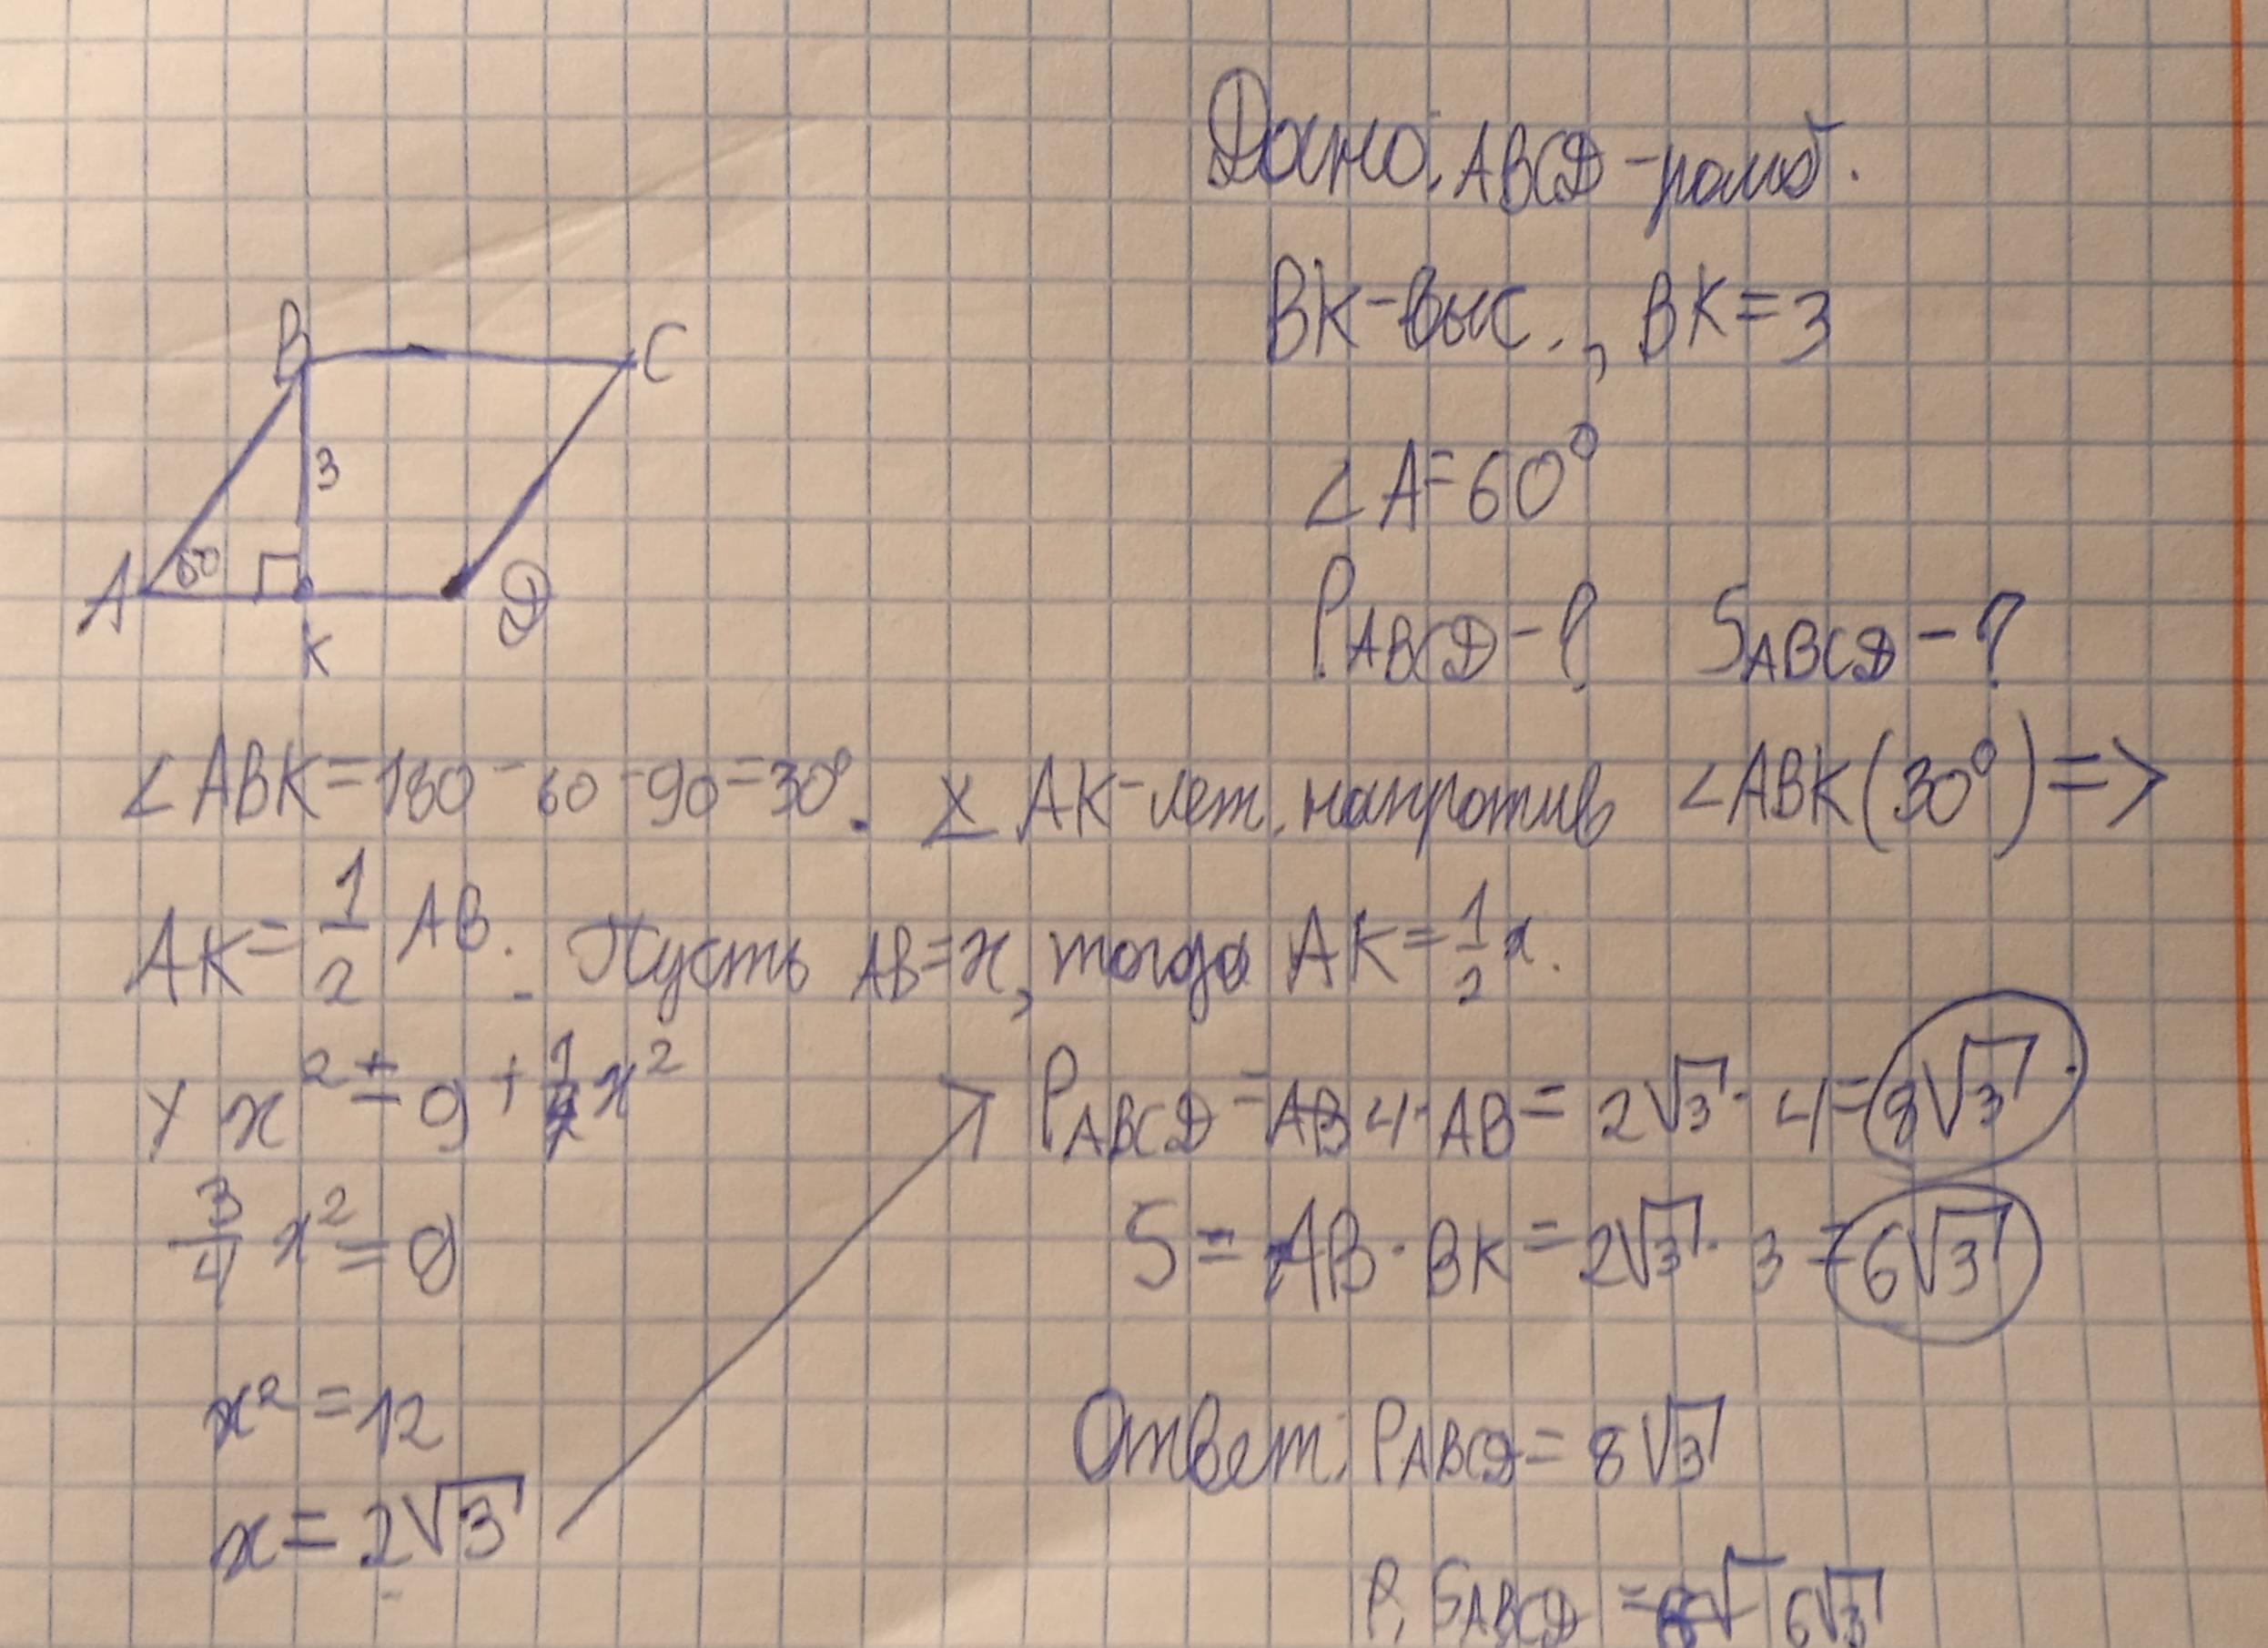 Дано: ABCD - ромб.
BK - выс., BK = 3
∠A = 60°
P_ABCD - ? S_ABCD - ?
B
C
3
A
60
D
K
∠ABK = 180 - 60 - 90 = 30°. AK - леж. напротив ∠ABK (30°) =>
AK = 1/2 AB. Пусть AB = x, тогда AK = 1/2 x.
x² = 9 + 1/4 x²
3/4 x² = 9
x² = 12
x = 2√3
P_ABCD = 4 · AB = 2√3 · 4 = 8√3.
S = AB · BK = 2√3 · 3 = 6√3
Ответ: P_ABCD = 8√3
S_ABCD = 6√3